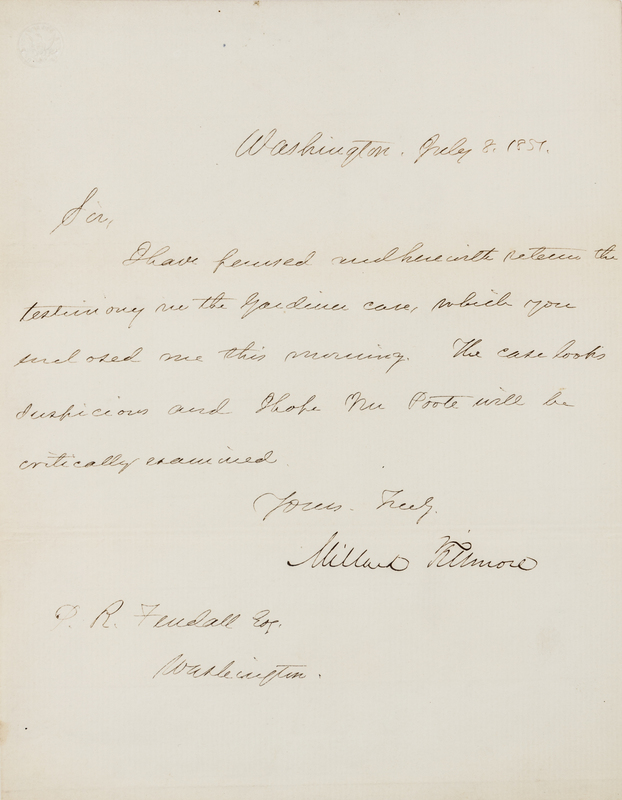 Washington. July 8. 1851.
Sir,
I have perused and herewith return the
testimony in the Gardiner case, which you
enclosed me this morning. The case looks
suspicious and I hope Mr Poote will be
critically examined.
Yours Truly.
Millard Fillmore
P. R. Fendall Esq.
Washington.